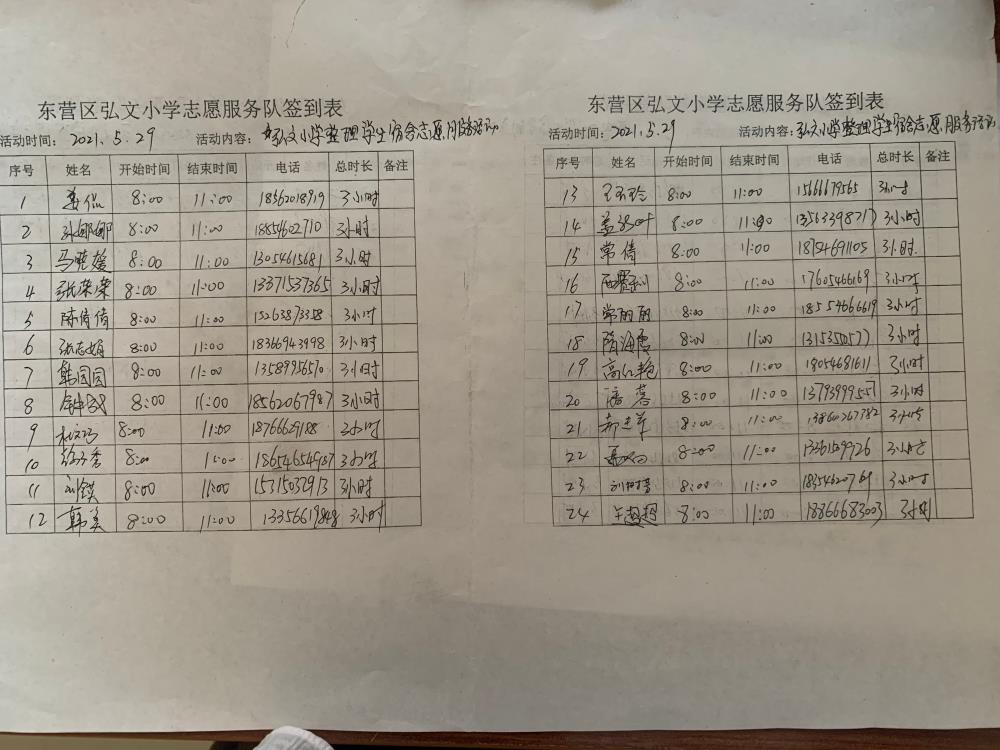 东营区弘文小学志愿服务队签到表
活动时间: 2021.5.29 活动内容: 弘文小学整理学生宿舍志愿服务活动
序号 姓名 开始时间 结束时间 电话 总时长 备注
1 8:00 11:00 18562018919 3小时
2 孙娜娜 8:00 11:00 18854602710 3小时
3 马晓媛 8:00 11:00 13054615681 3小时
4 张荣荣 8:00 11:00 13371537365 3小时
5 陈倩倩 8:00 11:00 15263873358 3小时
6 张志娟 8:00 11:00 18366943998 3小时
7 韩园园 8:00 11:00 13589956510 3小时
8 8:00 11:00 18562067987 3小时
9 8:00 11:00 18766629188 3小时
10 8:00 11:00 18654654987 3小时
11 刘镁 8:00 11:00 15315032913 3小时
12 韩美 8:00 11:00 13356619848 3小时
东营区弘文小学志愿服务队签到表
活动时间: 2021.5.29 活动内容: 弘文小学整理学生宿舍志愿服务活动
序号 姓名 开始时间 结束时间 电话 总时长 备注
13 王玉玲 8:00 11:00 15666679565 3小时
14 8:00 11:00 13563398717 3小时
15 常倩 8:00 11:00 18754691105 3小时
16 8:00 11:00 17605466169 3小时
17 常丽丽 8:00 11:00 18554666619 3小时
18 隋海霞 8:00 11:00 3小时
19 高红艳 8:00 11:00 18054681611 3小时
20 潘蓉 8:00 11:00 13793999551 3小时
21 8:00 11:00 13860267782 3小时
22 8:00 11:00 13361509926 3小时
23 8:00 11:00 18354620769 3小时
24 王超超 8:00 11:00 18866683003 3小时